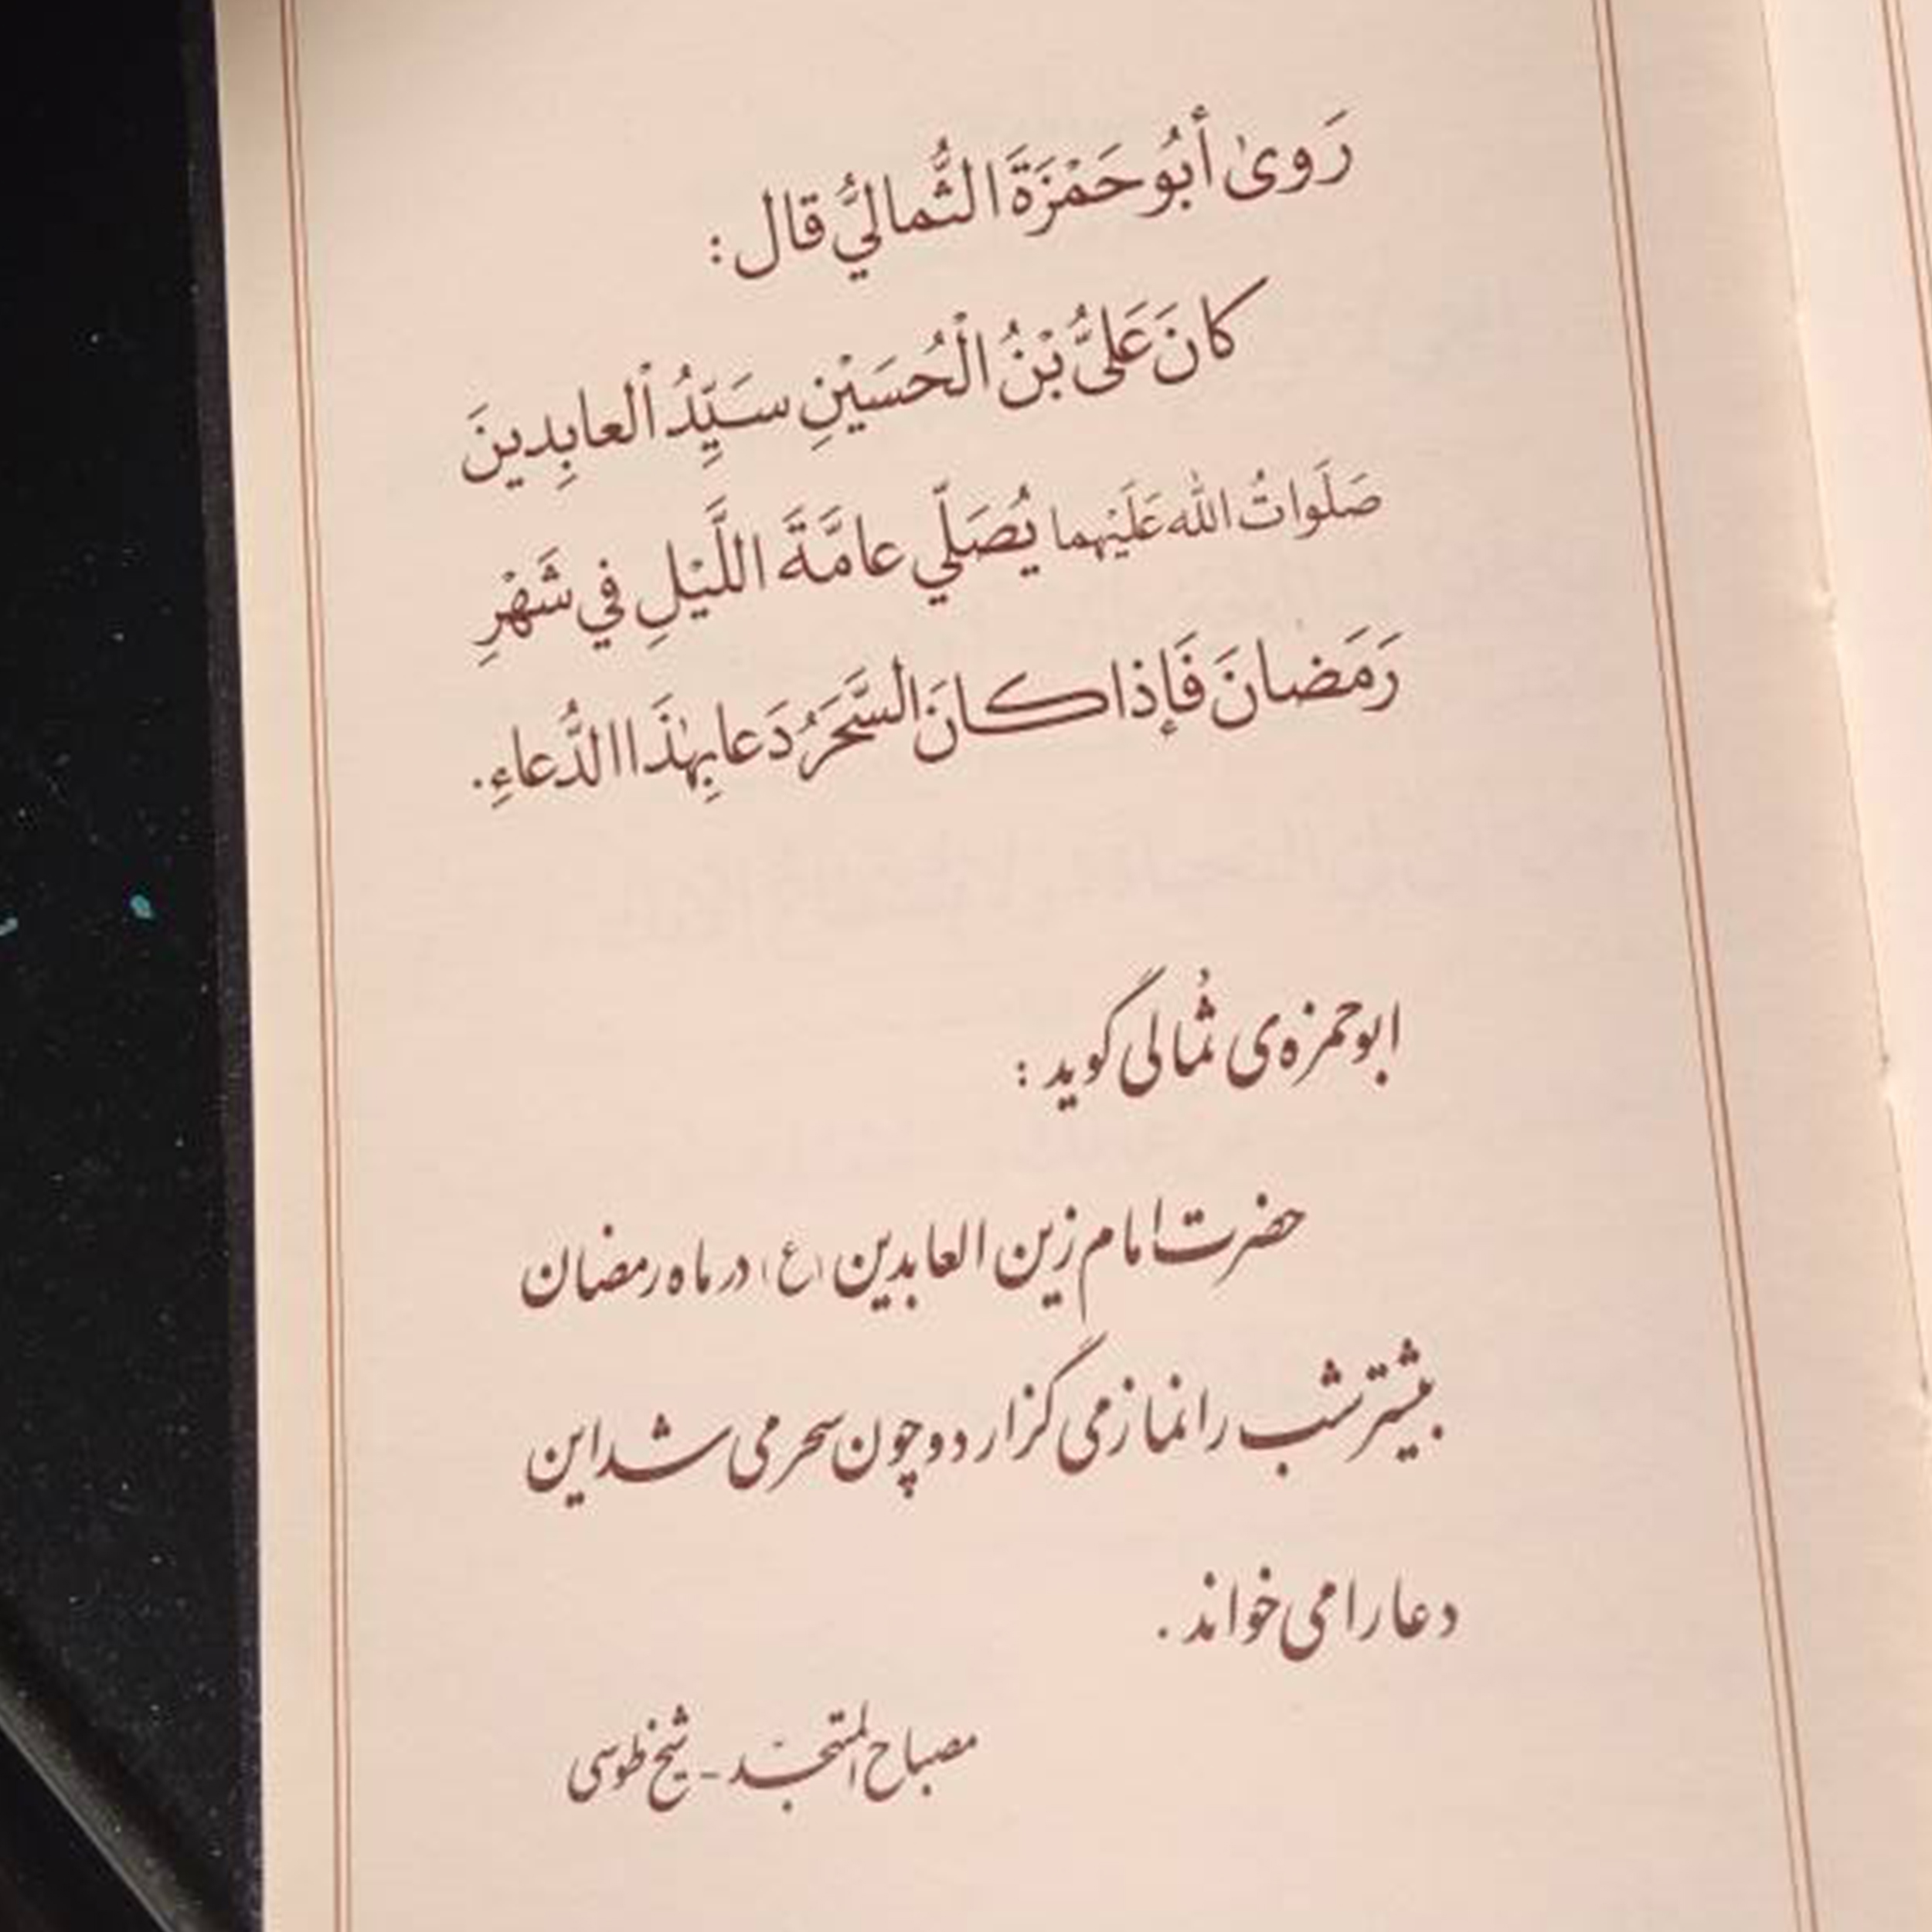 رَوىٰ أَبُو حَمْزَةَ الثُّمالِيُّ قال :
كانَ عَلىُّ بْنُ الْحُسَيْنِ سَيِّدُ الْعابِدينَ
صَلَواتُ الله عَلَيْهِما يُصَلّي عامَّةَ اللَّيْلِ في شَهْرِ
رَمَضانَ فَإِذا كانَ السَّحَرُ دَعا بِهٰذَا الدُّعاءِ.
ابوحمزه‌ی ثُمالی گوید :
حضرت امام زین العابدین (ع) در ماه رمضان
بیشتر شب را نماز می گزارد و چون سحر می شد این
دعا را می خواند .
مصباح المتهجّد - شیخ طوسی